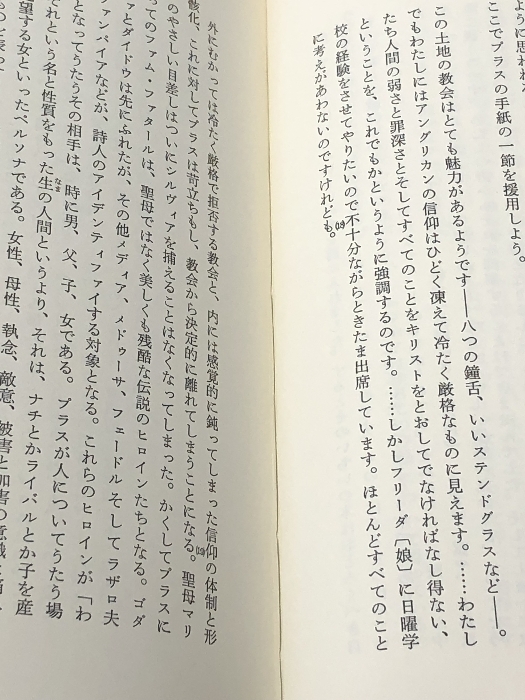 ように思われる
ここでプラスの手紙の一節を援用しよう。
この土地の教会はとても魅力があるようです――八つの鐘舌、いいステンドグラスなど――。
でもわたしにはアングリカンの信仰はひどく凍えて冷たく厳格なものに見えます。……わたし
たち人間の弱さと罪深さとそしてすべてのことをキリストをとおしてでなければなし得ない、
ということを、これでもかというように強調するのです。……しかしフリーダ〔娘〕に日曜学
校の経験をさせてやりたいので不十分ながらときたま出席しています。ほとんどすべてのこと
に考えがあわないのですけれども。
外にむかっては冷たく厳格で拒否する教会と、内には感覚的に鈍ってしまった信仰の体制と形
骸化、これに対してプラスは苛立ちもし、教会から決定的に離れてしまうことになる。聖母マリ
のやさしい目差しはついにシルヴィアを捕えることはなくなってしまった。かくしてプラスに
ってのファム・ファタールは、聖母ではなく美しくも残酷な伝説のヒロインたちとなる。ゴダ
ァとダイドウは先にふれたが、その他メディア、メドゥーサ、フェードルそしてラザロ夫
ァンパイアなどが、詩人のアイデンティファイする対象となる。これらのヒロインが「わ
となってうたうその相手は、時に男、父、子、女である。プラスが人についてうたう場
それという名と性質をもった生の人間というより、それは、ナチとかライバルとか子を産
望する女といったペルソナである。女性、母性、執念、敵意、被害と加害の意識